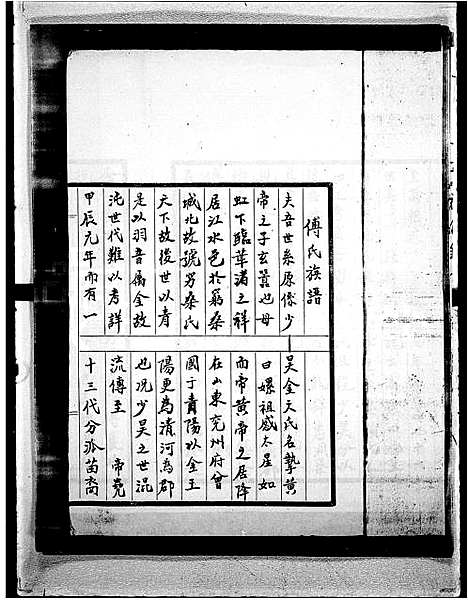 傅氏族譜
夫吾世系原係少昊金天氏名摯黄
帝之子玄囂也母曰嫘祖感太星如
虹下臨華渚之祥而帝黄帝之居降
居江水邑於窮桑在山東兖州府曾
城北故號穷桑氏國于青陽以金王
天下故後世以青陽更為清河為郡
是以羽音屬金故也况少昊之世混
沌世代難以考詳流傳至 帝堯
甲辰元年而有一十三代分派苗裔